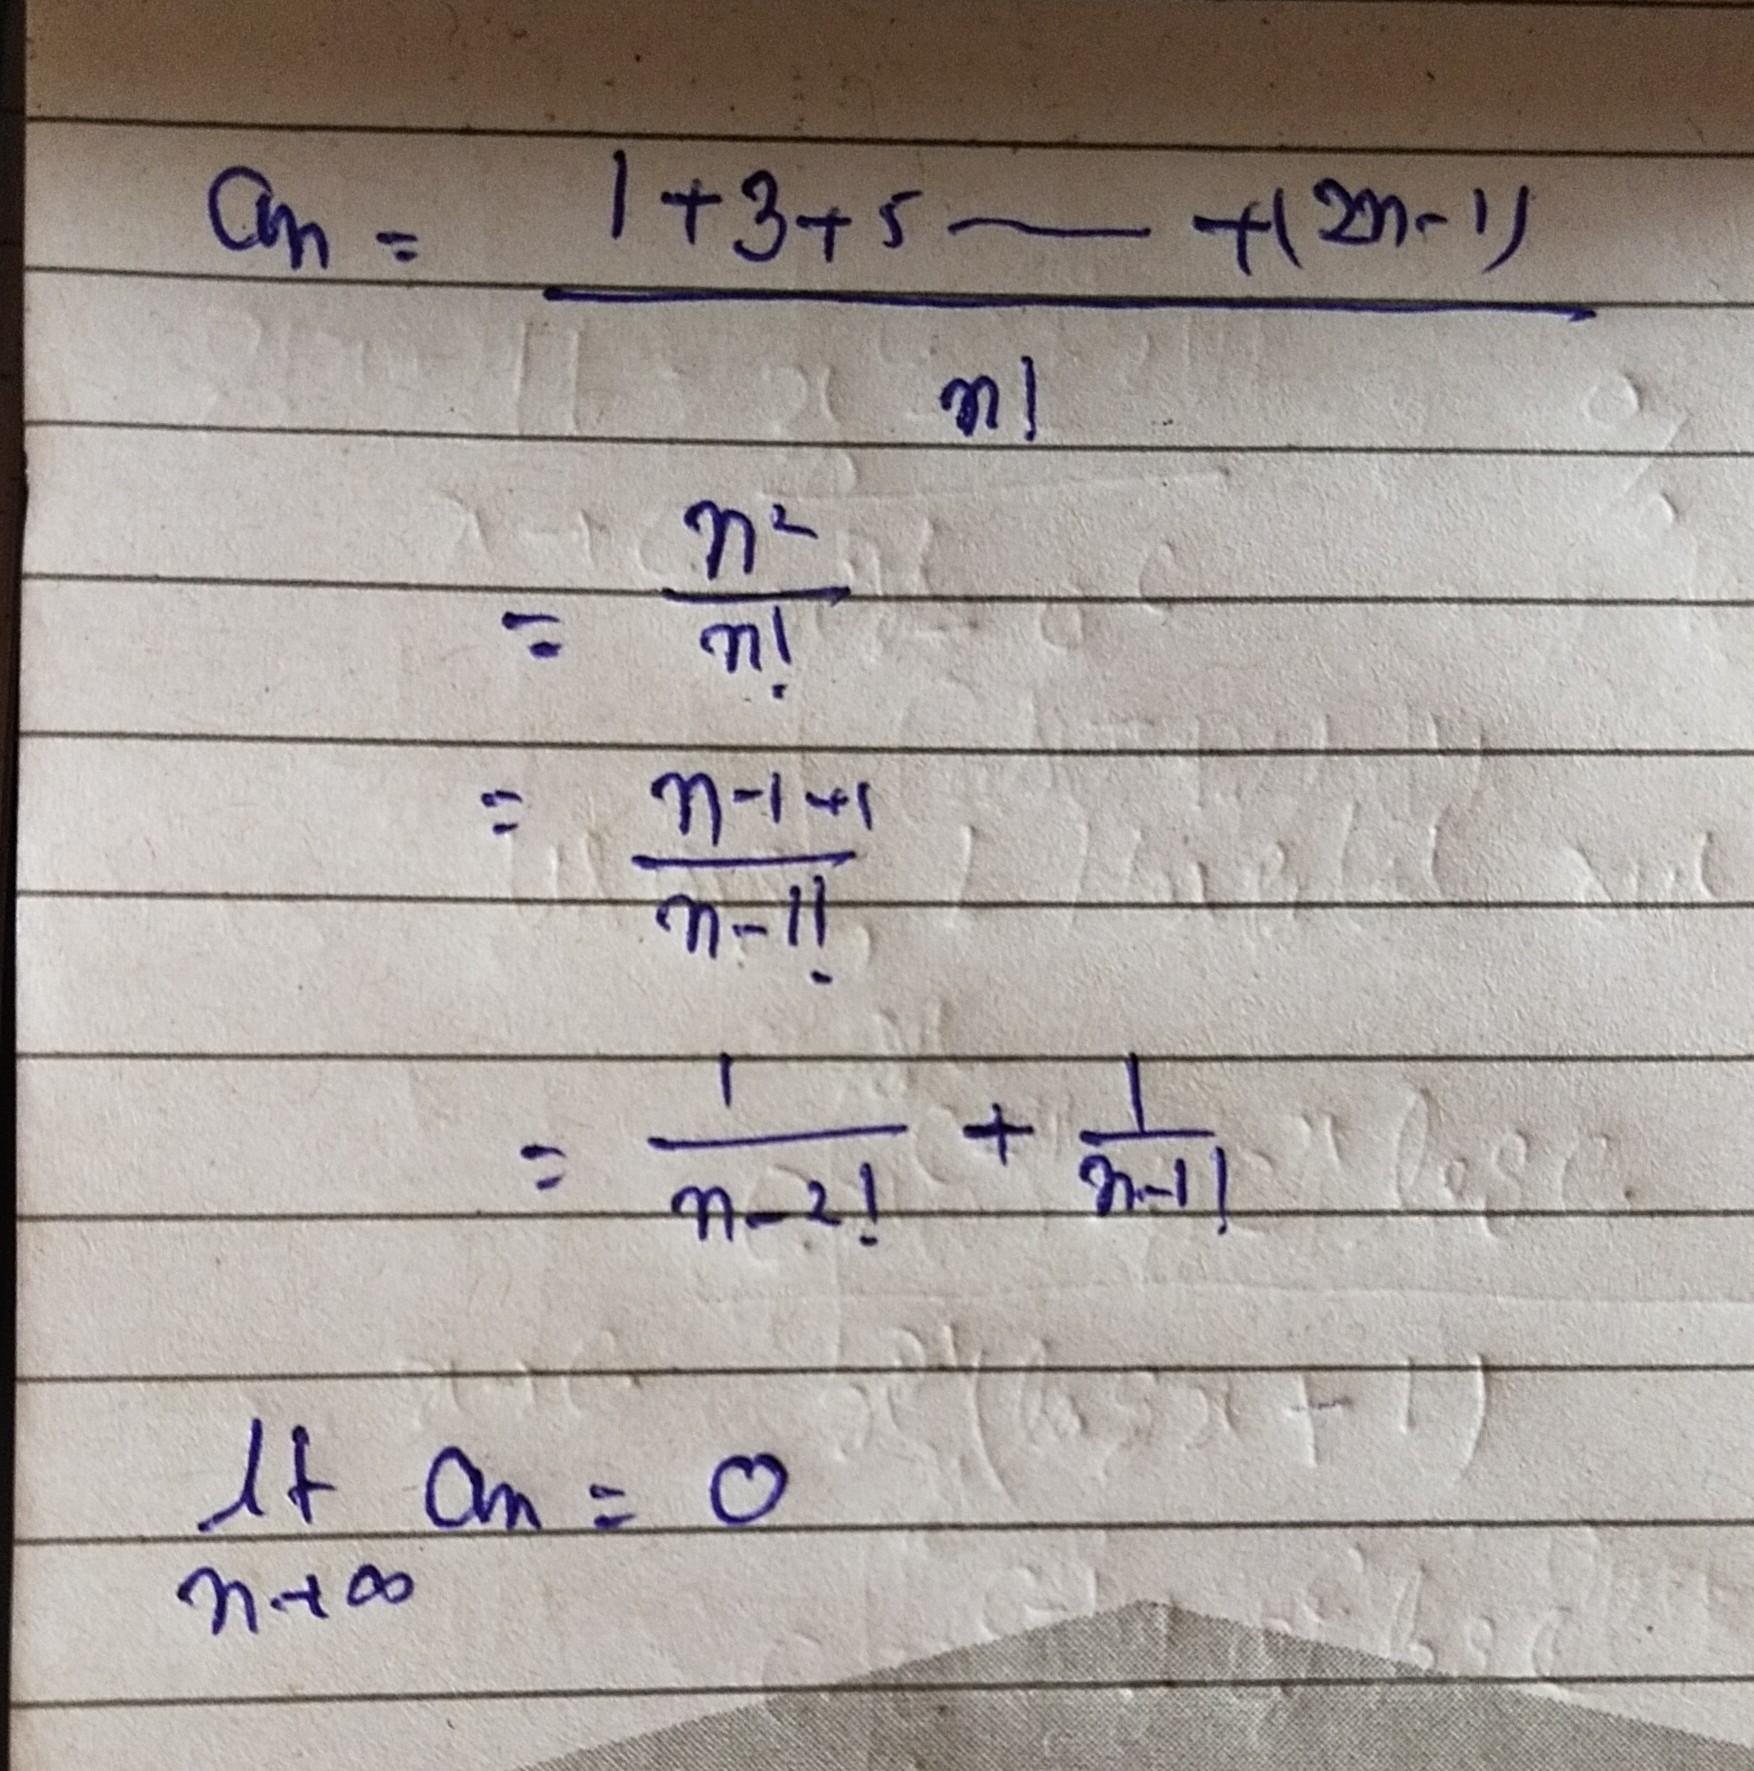 an = 1+3+5 —— +(2n-1)
n!
= n²
n!
= n-1+1
n-1!
= 1 + 1
n-2! n-1!
lt an = 0
n→∞